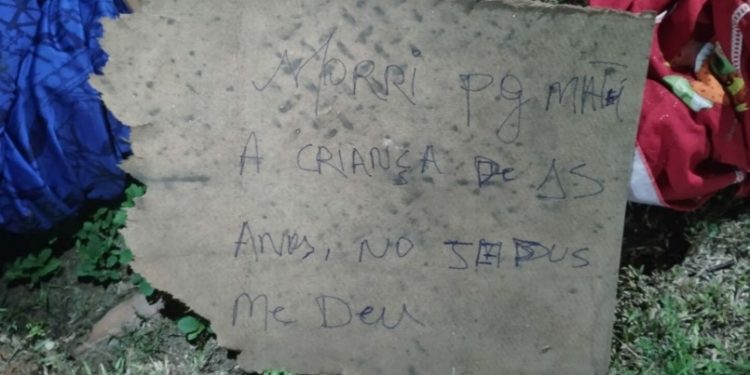 MORRI pq MATEI
A CRIANÇA DE 15
ANOS, NO
Me Deu